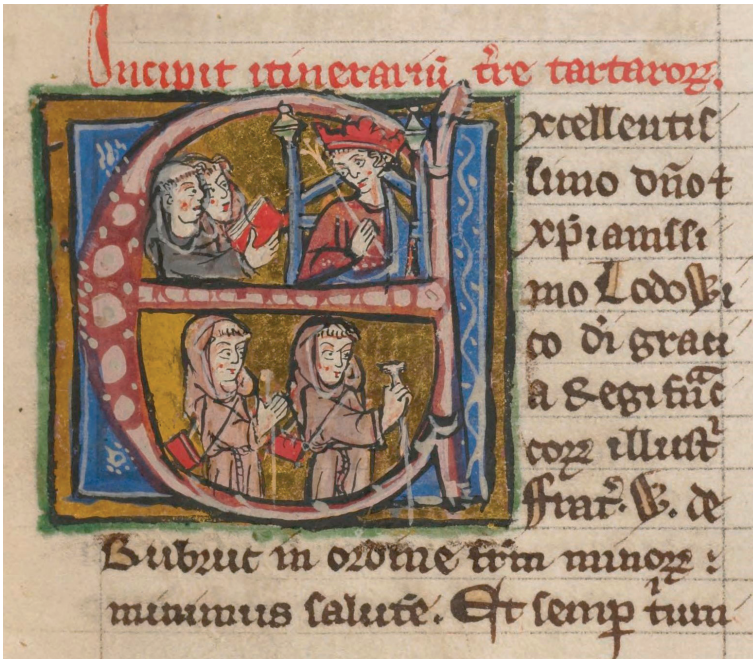 Incipit itinerariū t̄re tartaroꝝ.
Excellentis
simo dn̄o ⁊
xp̄ianissi
mo Lodowi
co di̾ grati
a Regi fn̄c
coꝝ illustͬ
ffrat͛. W. de
Rubruc in ordine frm̄ minoꝝ:
minimus salutē. Et semp̱ tͥum